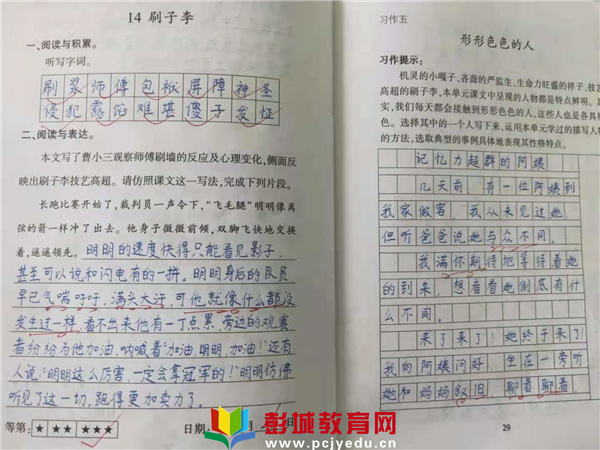 14 刷子李
一、阅读与积累。
听写字词。
刷浆师傅包袱屏障神圣
侵犯露馅难堪傻子发怔
二、阅读与表达。
本文写了曹小三观察师傅刷墙的反应及心理变化,侧面
反映出刷子李技艺高超。请仿照课文这一写法,完成下列片段。
长跑比赛开始了,裁判员一声令下,“飞毛腿”明明像离
弦的箭一样冲了出去。他身子微微前倾,双脚飞快地交换
着,遥遥领先。明明的速度快得只能看见影子,
甚至可以说和闪电有的一拼。明明身后的队员
早已气喘吁吁,满头大汗,可他就像什么都没
发生过一样,看不出来他有一丁点累,旁边的观赛
者纷纷为他加油,呐喊着“加油,明明,加油!”还有
人说:“明明这么厉害,一定会拿冠军的!”明明仿佛
听见了这一切,跑得更加卖力了。
等第:★ ★★ ★★★
日期: 月 日
习作五
形形色色的人
习作提示:
机灵的小嘎子、各啬的严监生、生命力旺盛的祥子、技艺
高超的刷子李,本单元课文中呈现的人物都是特点鲜明。其
实,我们每天都会接触到形形色色的人,这些人也是各具特
色。选择其中的一个人写下来,运用本单元学过的描写人物
的方法,选取典型的事例具体地表现其性格特点。
记忆力超群的阿姨
几天前,有一位阿姨到
我家做客,我从未见过她,
但听爸爸说她与众不同。
我满怀期待地等待着她
的到来,想看看她到底有什
么不同。
来了来了!她终于来了!
我向阿姨问好,坐在一旁听
她和妈妈叙旧,聊着聊着,
29
彭城教育网
www.pcjyedu.cn